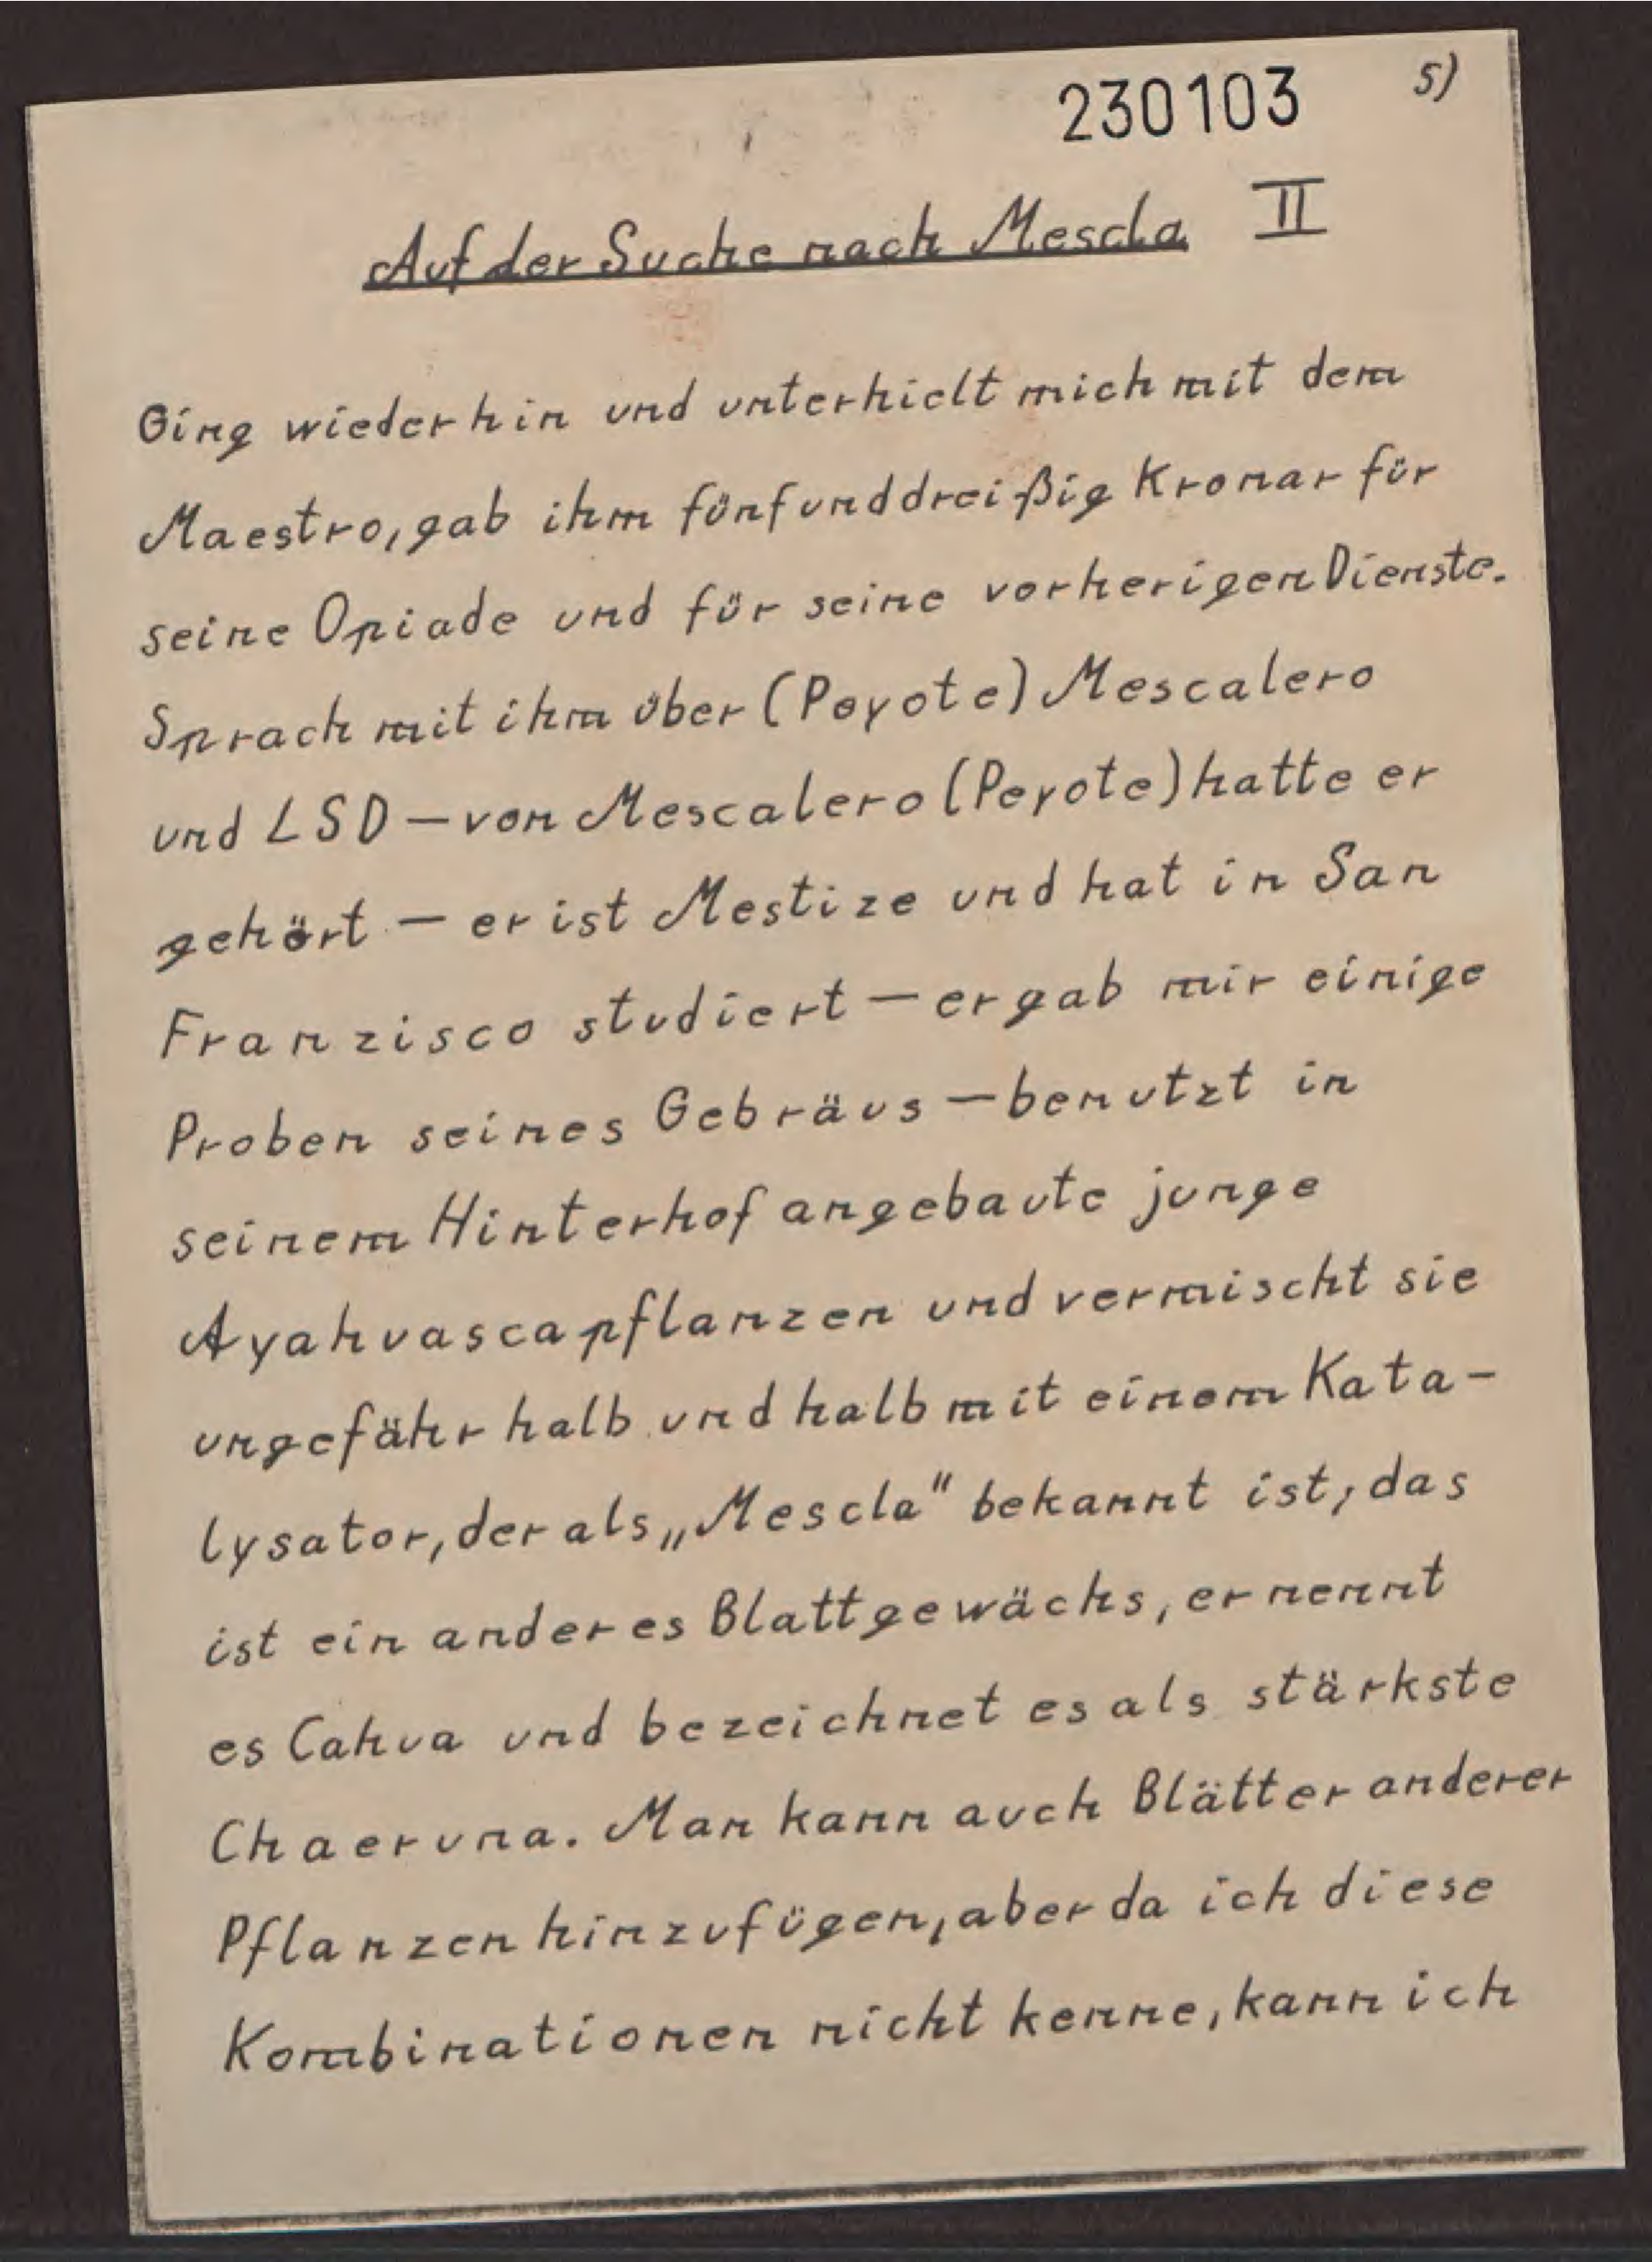 230103 5)
Auf der Suche nach Mescla II
Ging wieder hin und unterhielt mich mit dem
Maestro, gab ihm fünfunddreißig Kronar für
seine Opiade und für seine vorherigen Dienste.
Sprach mit ihm über (Peyote) Mescalero
und LSD – von Mescalero (Peyote) hatte er
gehört – er ist Mestize und hat in San
Franzisco studiert – er gab mir einige
Proben seines Gebräus – benutzt in
seinem Hinterhof angebaute junge
Ayahuascapflanzen und vermischt sie
ungefähr halb und halb mit einem Kata-
lysator, der als „Mescla" bekannt ist, das
ist ein anderes Blattgewächs, er nennt
es Cahua und bezeichnet es als stärkste
Chaeruna. Man kann auch Blätter anderer
Pflanzen hinzufügen, aber da ich diese
Kombinationen nicht kenne, kann ich